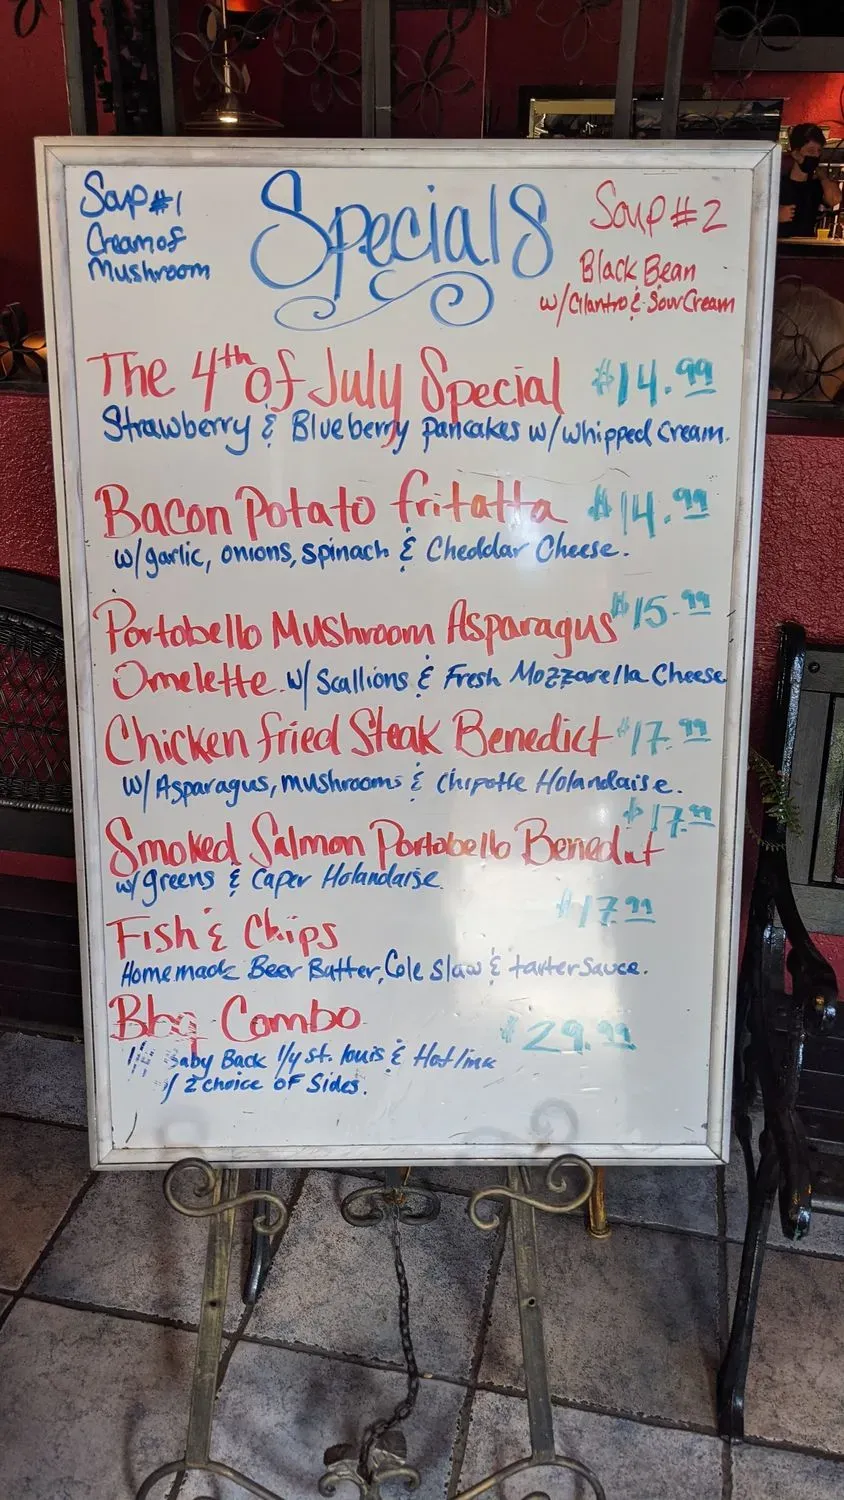 Soup #1
Cream of
Mushroom
Specials
Soup #2
Black Bean
w/Cilantro & Sour Cream
The 4th of July Special $14.99
Strawberry & Blueberry pancakes w/whipped Cream.
Bacon Potato fritatta $14.99
w/garlic, onions, spinach & Cheddar Cheese.
Portobello Mushroom Asparagus $15.99
Omelette w/ Scallions & Fresh Mozzarella Cheese
Chicken fried Steak Benedict $17.99
w/ Asparagus, mushrooms & Chipotle Holandaise.
$17.99
Smoked Salmon Portobello Benedict
w/greens & Caper Holandaise.
$17.99
Fish & Chips
Homemade Beer Batter, Cole Slaw & tarter Sauce.
Bbq Combo
$29.99
Baby Back 1/4 St. louis & Hotlink
/ 2 choice OF Sides.